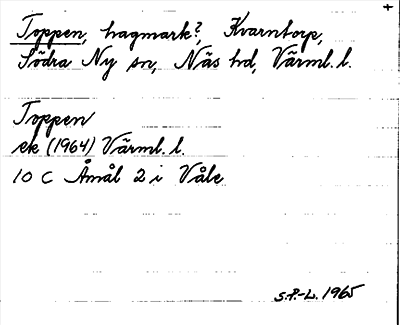 Toppen, hagmark?, Kvarntorp,
Södra Ny sn, Näs hd, Värml. l.
Toppen
ek (1964) Värml. l.
10 C Åmål 2 i Våle
S.P.-L. 1965